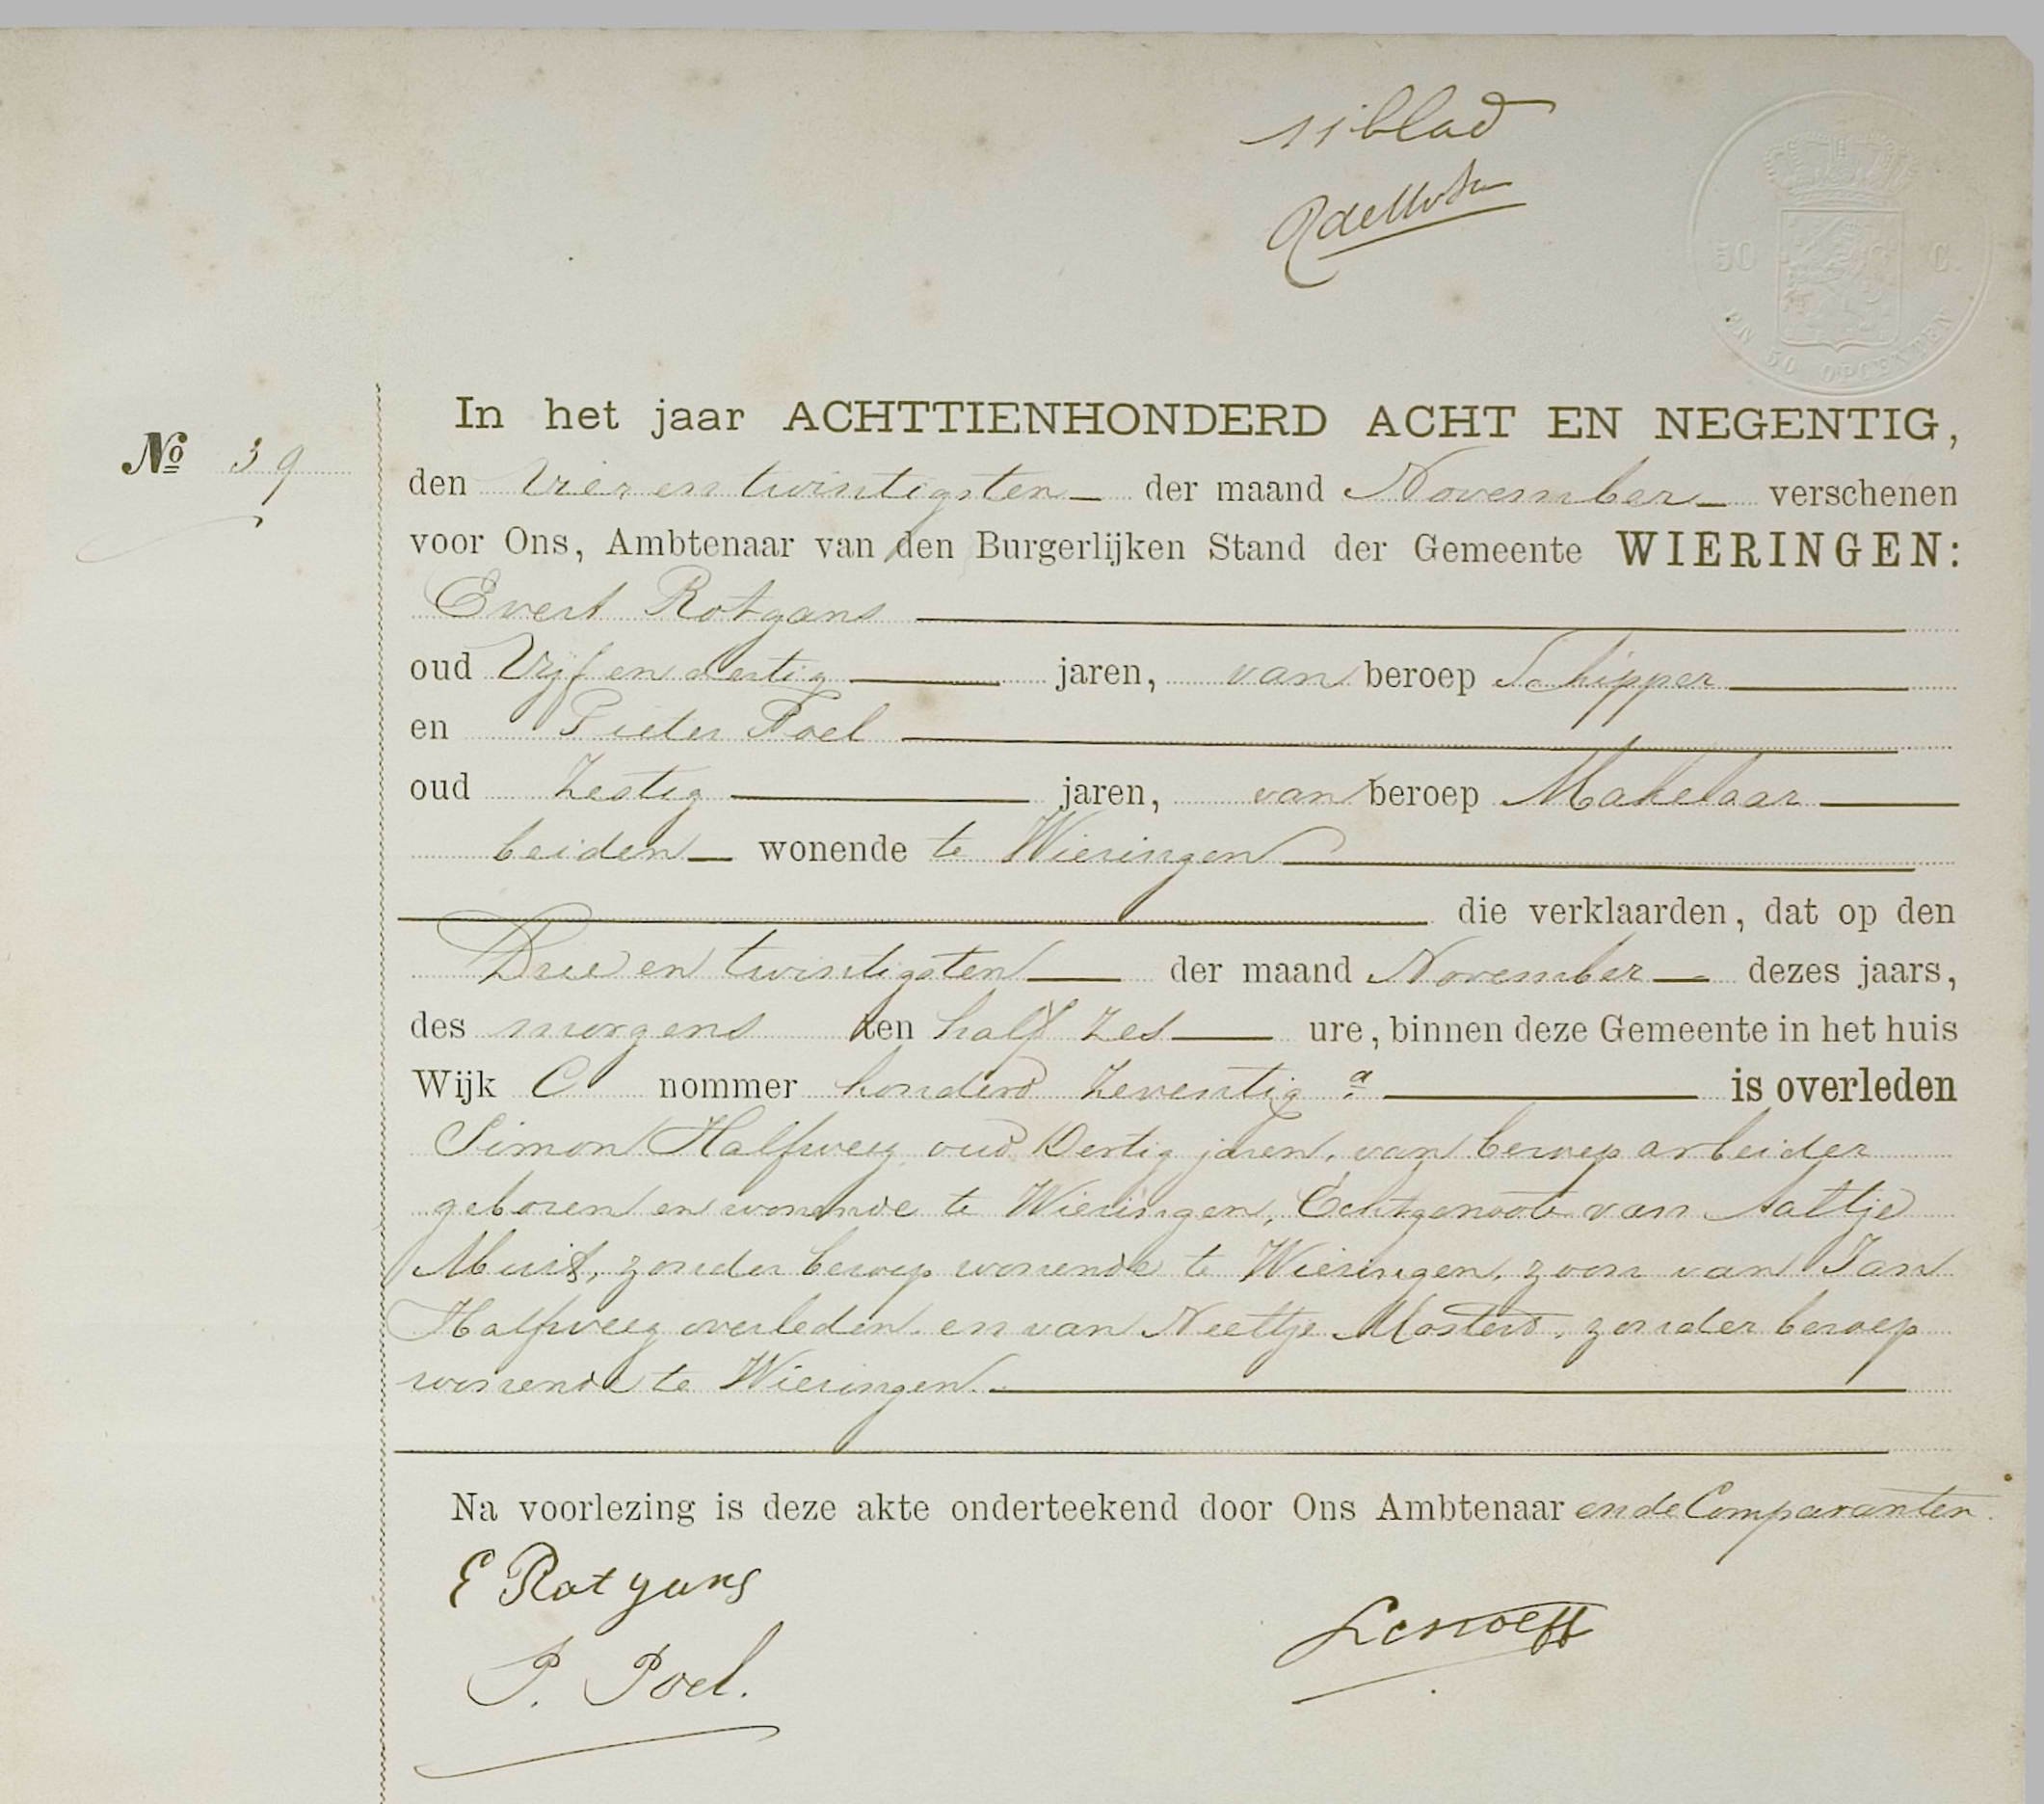 11 blad
50 C.
EN 50 OPCENTEN
No 39
In het jaar ACHTTIENHONDERD ACHT EN NEGENTIG,
den Vier en twintigsten der maand November verschenen
voor Ons, Ambtenaar van den Burgerlijken Stand der Gemeente WIERINGEN:
Evert Rotgans
oud Vijf en dertig jaren, van beroep Schipper
en Pieter Poel
oud Zestig jaren, van beroep Makelaar
beiden wonende te Wieringen
die verklaarden, dat op den
Drie en twintigsten der maand November dezes jaars,
des morgens ten half zes ure, binnen deze Gemeente in het huis
Wijk C nommer honderd zeventig a is overleden
Simon Halfweeg oud Dertig jaren, van beroep arbeider
geboren en wonende te Wieringen, Echtgenoote van Aaltje
Muis, zonder beroep wonende te Wieringen, zoon van Jan
Halfweeg overleden en van Neeltje Mosterd, zonder beroep
wonende te Wieringen.
Na voorlezing is deze akte onderteekend door Ons Ambtenaar en de Comparanten.
E Rotgans
P. Poel.